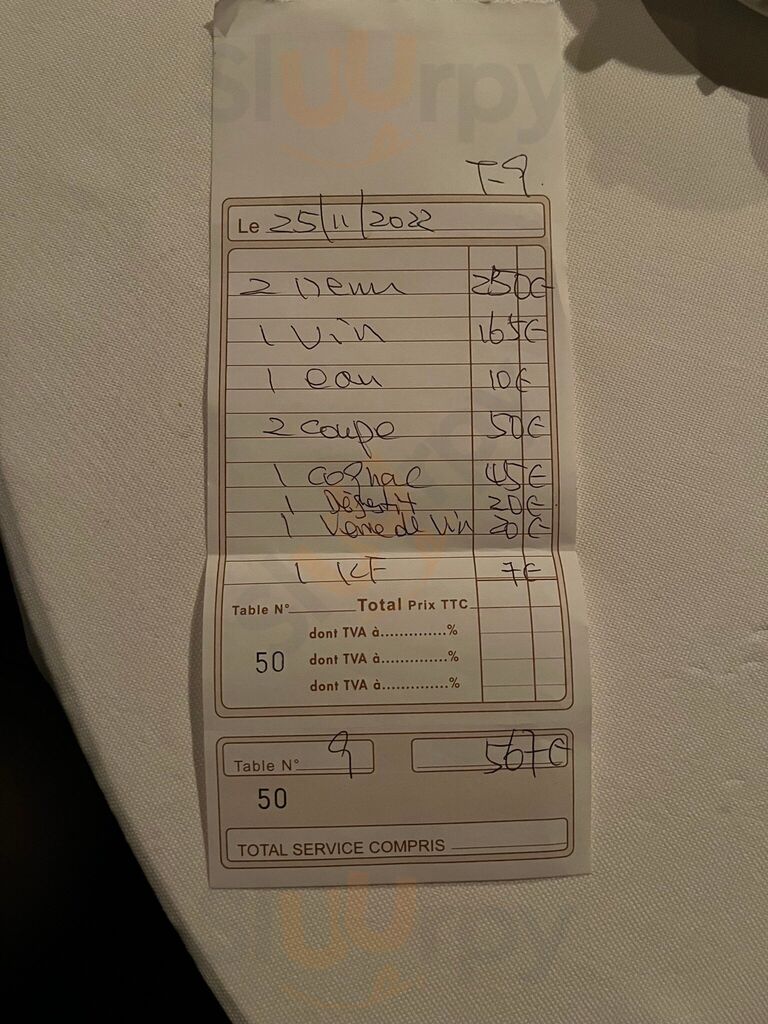 Sluurpy
T-9
Le 25/11/2022
2 menu 250€
1 Vin 165€
1 eau 10€
2 coupe 50€
1 cognac 45€
1 Dégestif 20€
1 Verre de Vin 20€
1 KF 7€
Table N° Total Prix TTC
dont TVA à..............%
50 dont TVA à..............%
dont TVA à..............%
Table N° 9 567€
50
TOTAL SERVICE COMPRIS
Sluurpy